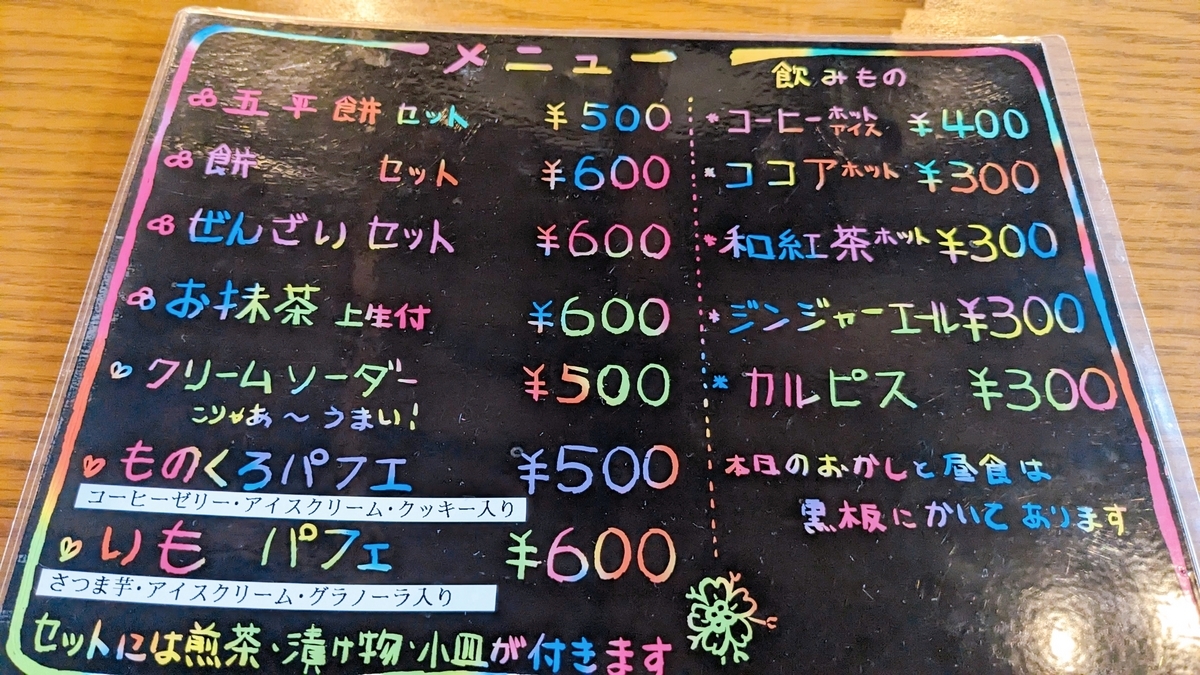 メニュー
五平餅 セット ¥500
餅 セット ¥600
ぜんざい セット ¥600
お抹茶 上生付 ¥600
クリームソーダー ¥500
こりゃあ～うまい!
ものくろパフェ ¥500
コーヒーゼリー・アイスクリーム・クッキー入り
いも パフェ ¥600
さつま芋・アイスクリーム・グラノーラ入り
セットには煎茶・漬け物・小皿が付きます
飲みもの
*コーヒー ホット アイス ¥400
*ココア ホット ¥300
*和紅茶 ホット ¥300
*ジンジャーエール ¥300
*カルピス ¥300
本日のおかしと昼食は
黒板にかいてあります